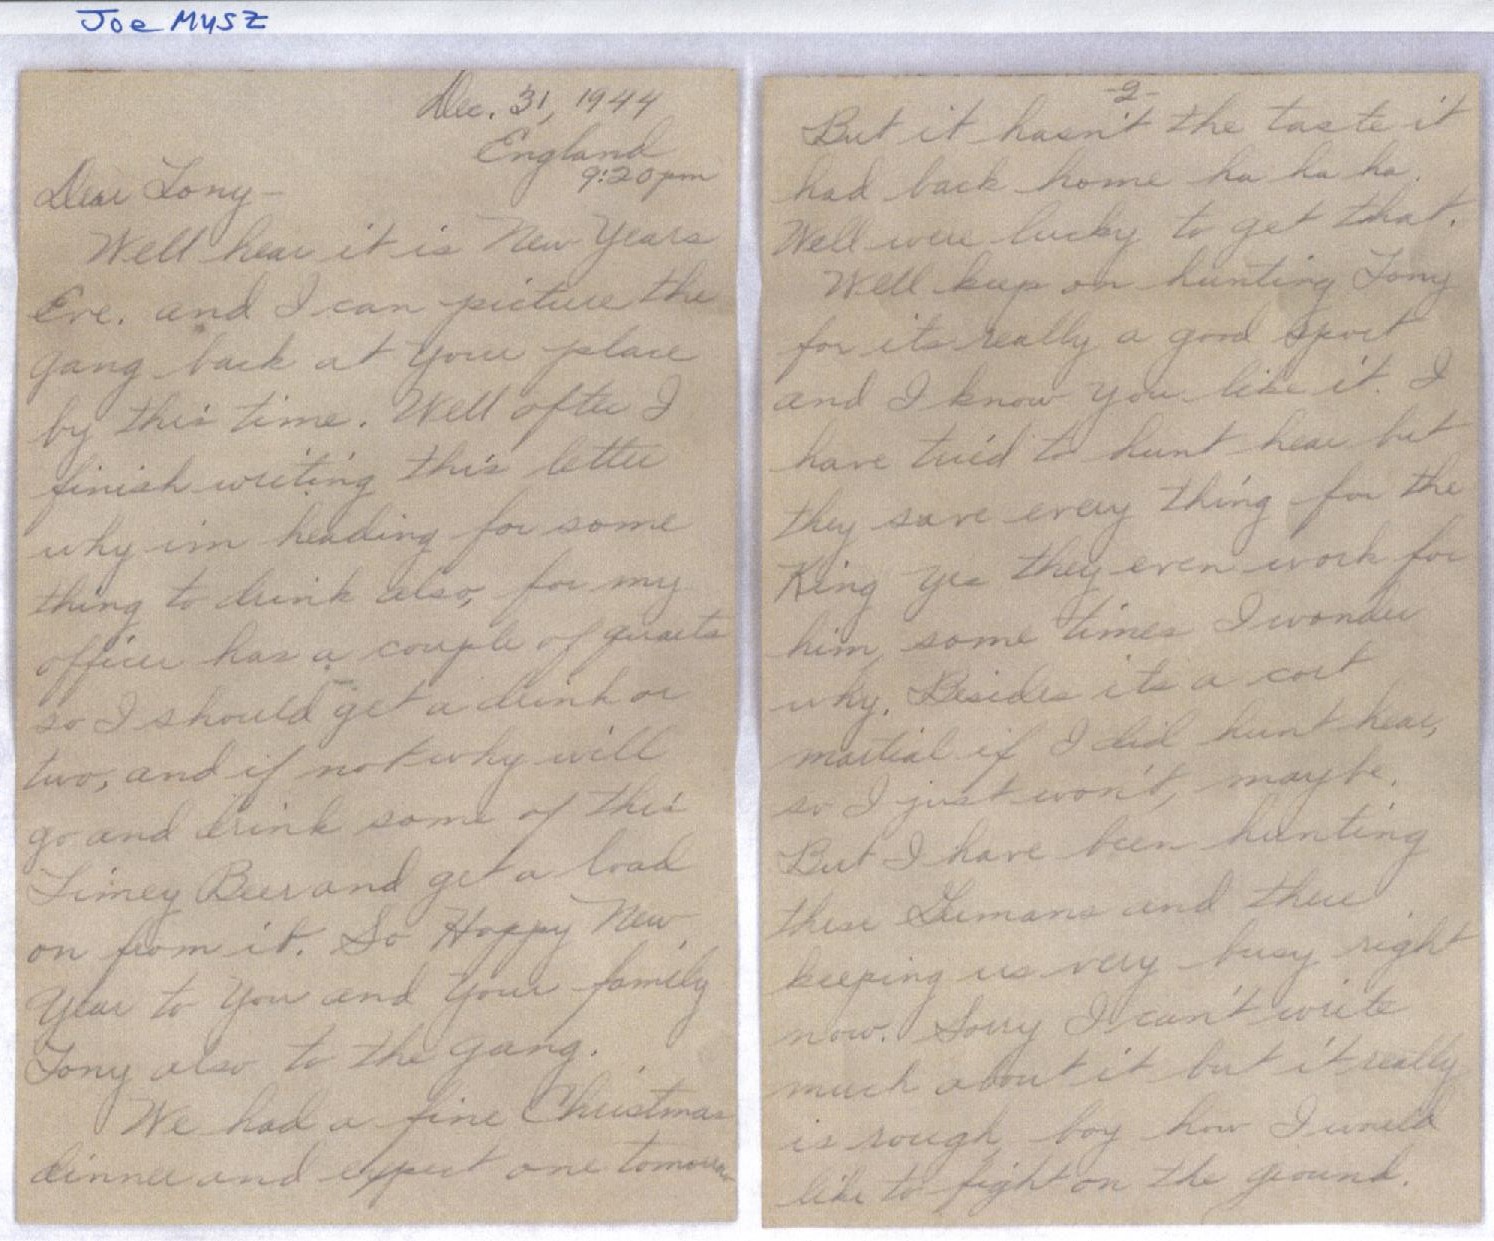 Joe Mysz
Dec. 31, 1944
England
9:20 pm
Dear Tony-
Well hear it is New Years
Eve. and I can picture the
gang back at your place
by this time. Well after I
finish writing this letter
why im heading for some
thing to drink also, for my
officer has a couple of quarts
so I should get a drink or
two, and if not why will
go and drink some of this
Limey Beer and get a load
on from it. So Happy New
Year to You and Your family
Tony also to the gang.
We had a fine Christmas
dinner and expect one tomorrow
-2-
But it hasn't the taste it
had back home ha ha ha.
Well were lucky to get that.
Well keep on hunting Tony
for its really a good sport
and I know you like it. I
have tried to hunt hear but
they save every thing for the
King yes they even work for
him, some times I wonder
why. Besides its a cort
martial if I did hunt hear,
so I just won't, maybe.
But I have been hunting
these Germans and there
keeping us very busy right
now. Sorry I can't write
much about it but it really
is rough, boy how I would
like to fight on the ground.